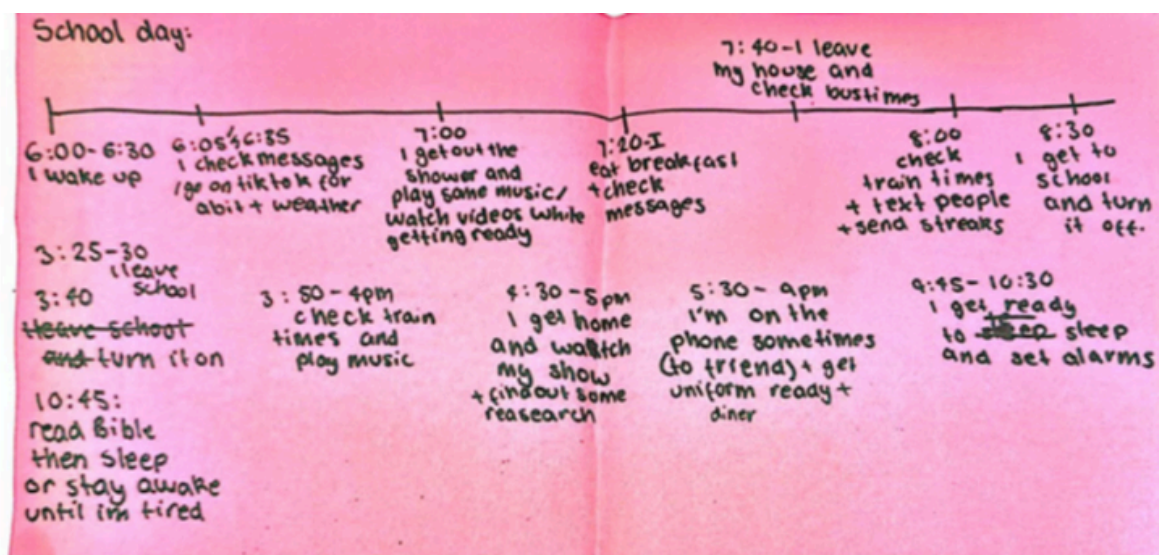 School day:
7:40-I leave
my house and
check bustimes
6:00-6:30
I wake up
6:05 6:35
I check messages
I go on tiktok for
abit + weather
7:00
I get out the
shower and
play some music/
watch videos while
getting ready
7:20-I
eat breakfast
+ check
messages
8:00
check
train times
+ text people
+ send streaks
8:30
I get to
school
and turn
it off.
3:25-30
I leave
school
3:40
I leave school
and turn it on
3:50-4pm
check train
times and
play music
4:30-5pm
I get home
and watch
my show
+ find out some
reasearch
5:30-9pm
I'm on the
phone sometimes
(to friend) + get
uniform ready +
diner
9:45-10:30
I get ready
to sleep sleep
and set alarms
10:45:
read Bible
then sleep
or stay awake
until im tired